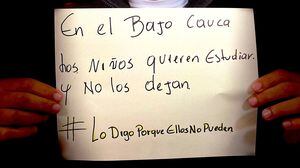 En el Bajo Cauca
Los Niños quieren Estudiar.
y No los dejan
#LoDigoPorqueEllosNoPueden